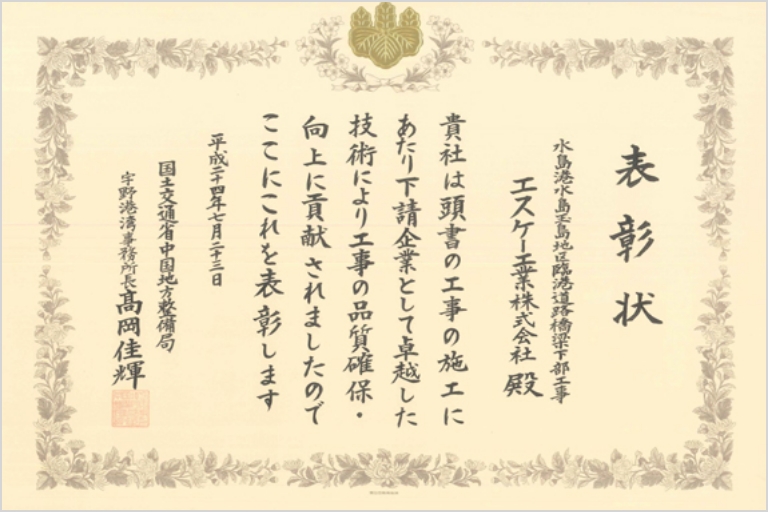 表彰状
水島港水島玉島地区臨港道路橋梁下部工事
エスケー工業株式会社 殿
貴社は頭書の工事の施工に
あたり下請企業として卓越した
技術により工事の品質確保・
向上に貢献されましたので
ここにこれを表彰します
平成二十四年七月二十三日
国土交通省中国地方整備局
宇野港湾事務所長 高岡佳輝